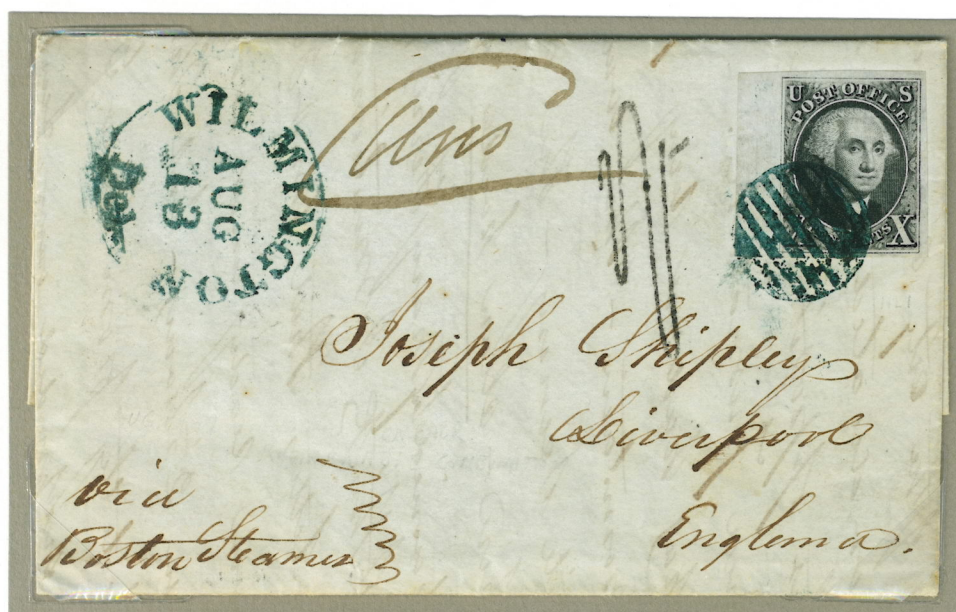 WILMINGTON
Del.
AUG
13
Ans
U S
POST OFFICE
X
Joseph Shipley
Liverpool
England.
via
Boston Steamer